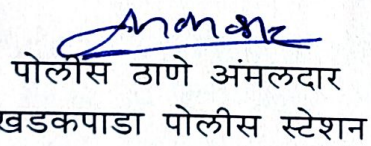 पोलीस ठाणे अंमलदार
खडकपाडा पोलीस स्टेशन